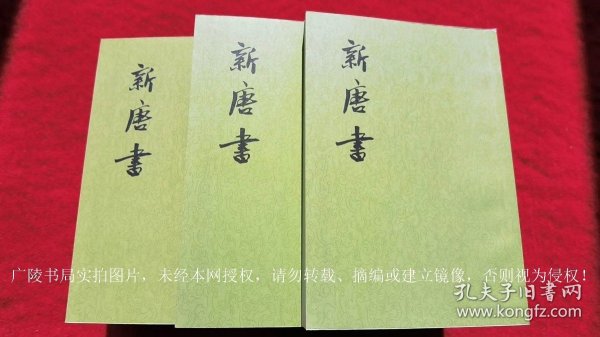 新唐書
新唐書
新唐書
广陵书局实拍图片，未经本网授权，请勿转载、摘编或建立镜像，否则视为侵权！
孔夫子旧書网
www.kongfz.com